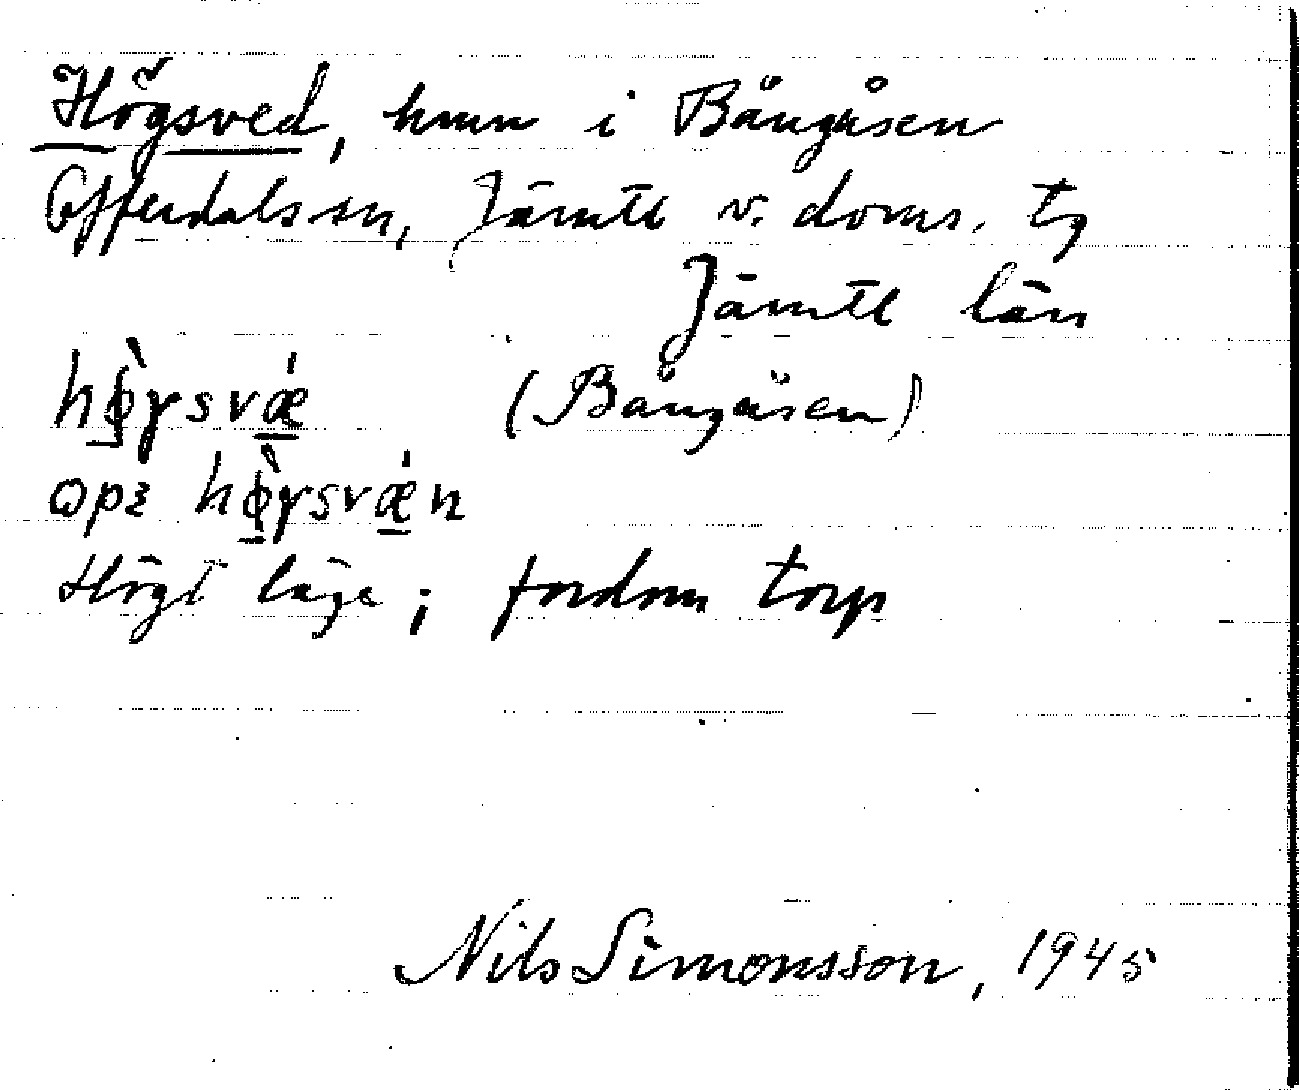 Högsved, hmn i Bångåsen
Offerdals sn, Jämtl v. doms. tg
Jämtl län
hø̀γsvǽ (Bångåsen)
opɜ hø̀γsvǽn
Högt läge; fordom torp
Nils Simonsson, 1945